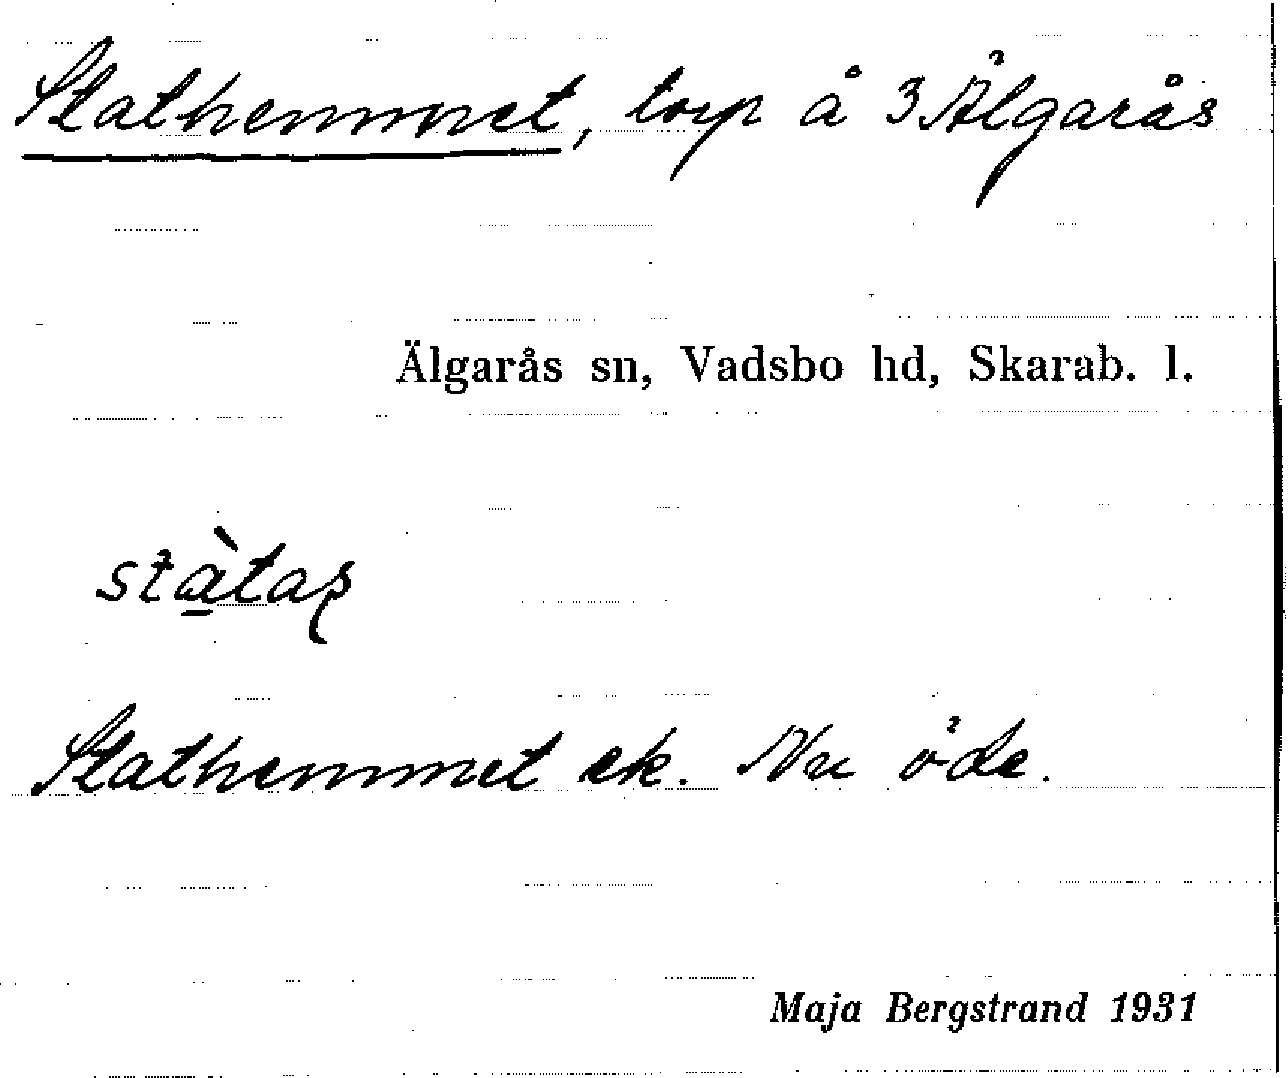 Stathemmet, torp å 3 Älgarås
Älgarås sn, Vadsbo hd, Skarab. l.
Stathemmet ek. Nu öde.
Maja Bergstrand 1931